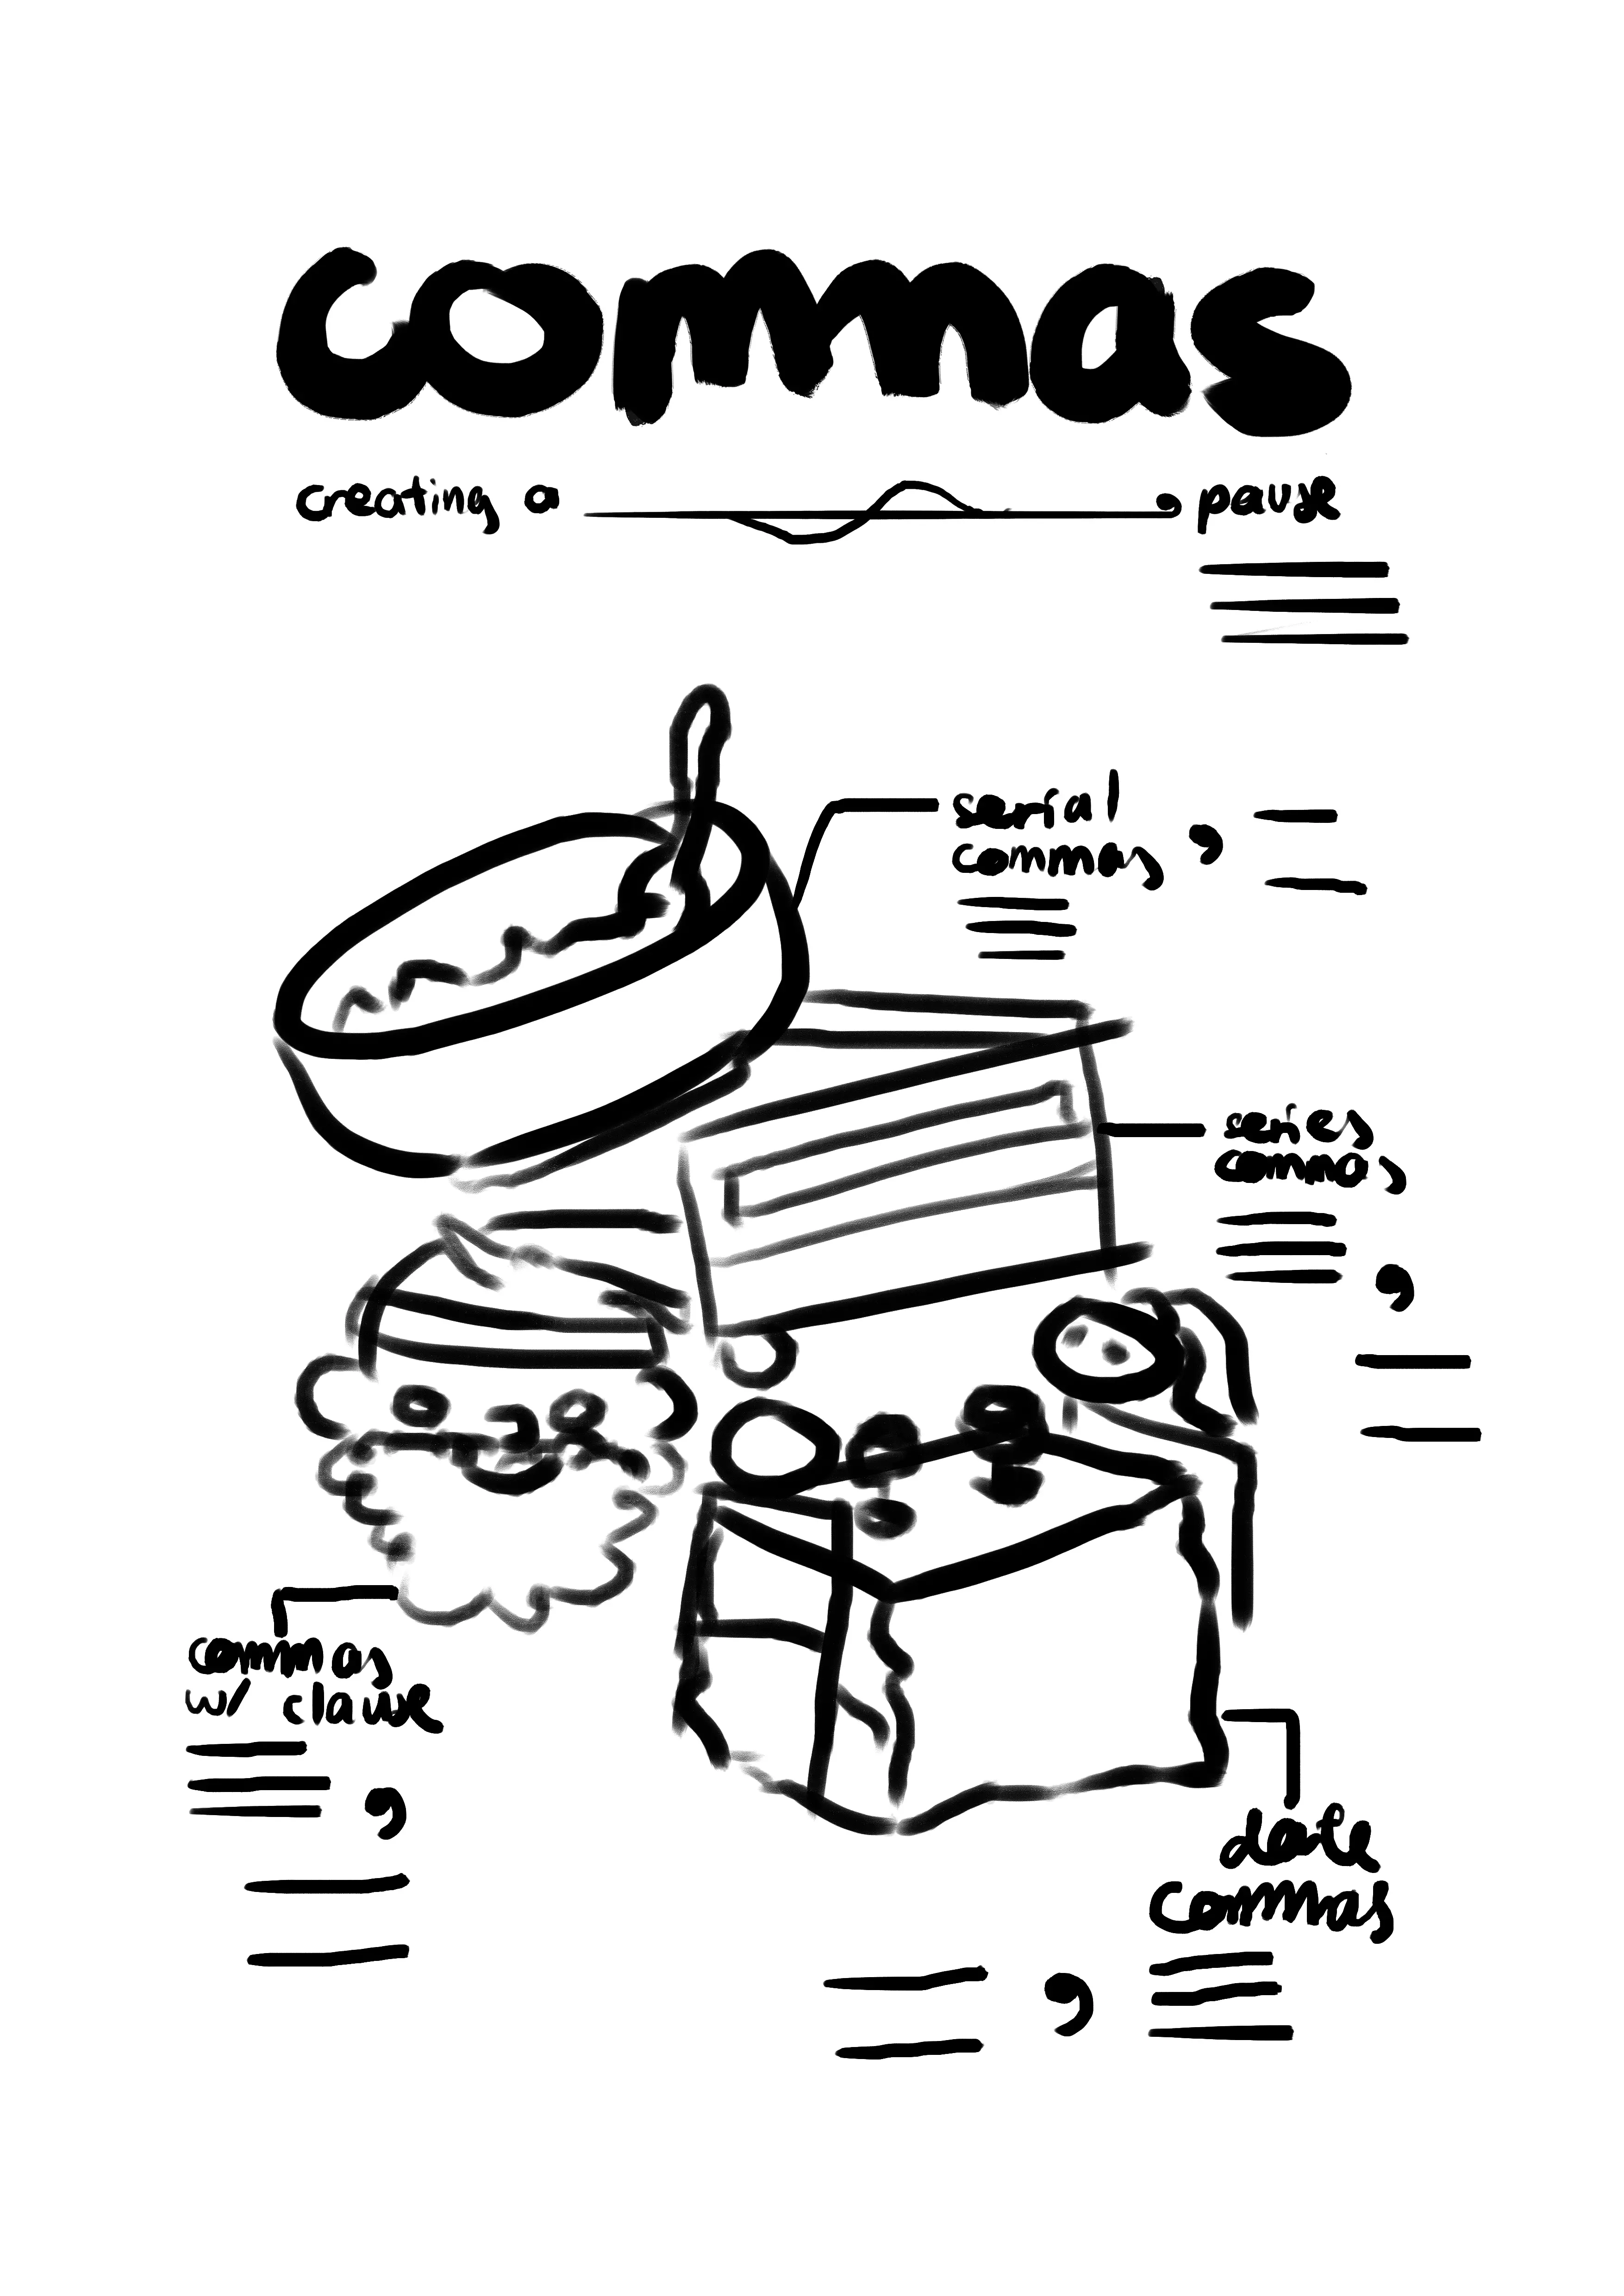 commas
creating a , pause
serial
commas ,
series
commas
,
commas
w/ clause
,
date
commas
,